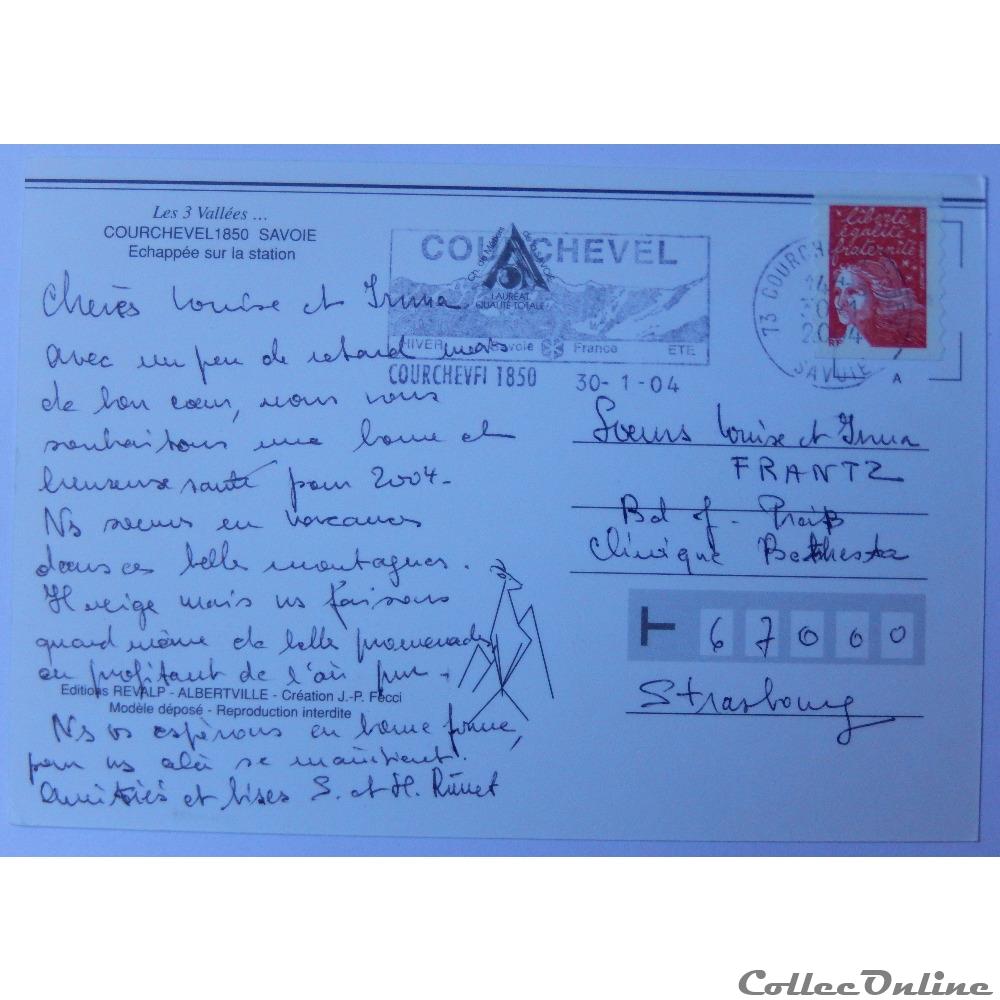 Les 3 Vallées ...
COURCHEVEL1850 SAVOIE
Echappée sur la station
COURCHEVEL
LAUREAT
QUALITE TOTALE
HIVER Savoie France ETE
COURCHEVEL 1850 30-1-04
73 COURCH
2004
SAVOIE
liberté
égalité
fraternité
RF
A
Chères Louise et Irma
avec un peu de retard mais
de bon cœur, nous vous
souhaitons une bonne et
heureuse santé pour 2004-
Ns sommes en vacances
dans ces belles montagnes.
Il neige mais ns faisons
quand même de belle promenades
en profitant de l'air pur.
Editions REVALP - ALBERTVILLE - Création J.-P. Fecci
Modèle déposé - Reproduction interdite
Ns vs espérons en bonne forme,
pour ns cela se maintient.
Amitiés et bises S. et H.
Soeurs Louise et Irma
FRANTZ
Bd J.
Clinique Bethesda
T 67000
Strasbourg
CollecOnline